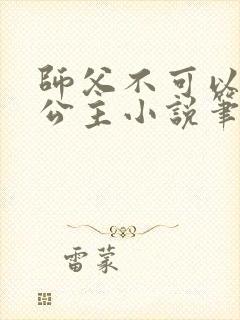 師父不可以
公主小說筆
雷蒙